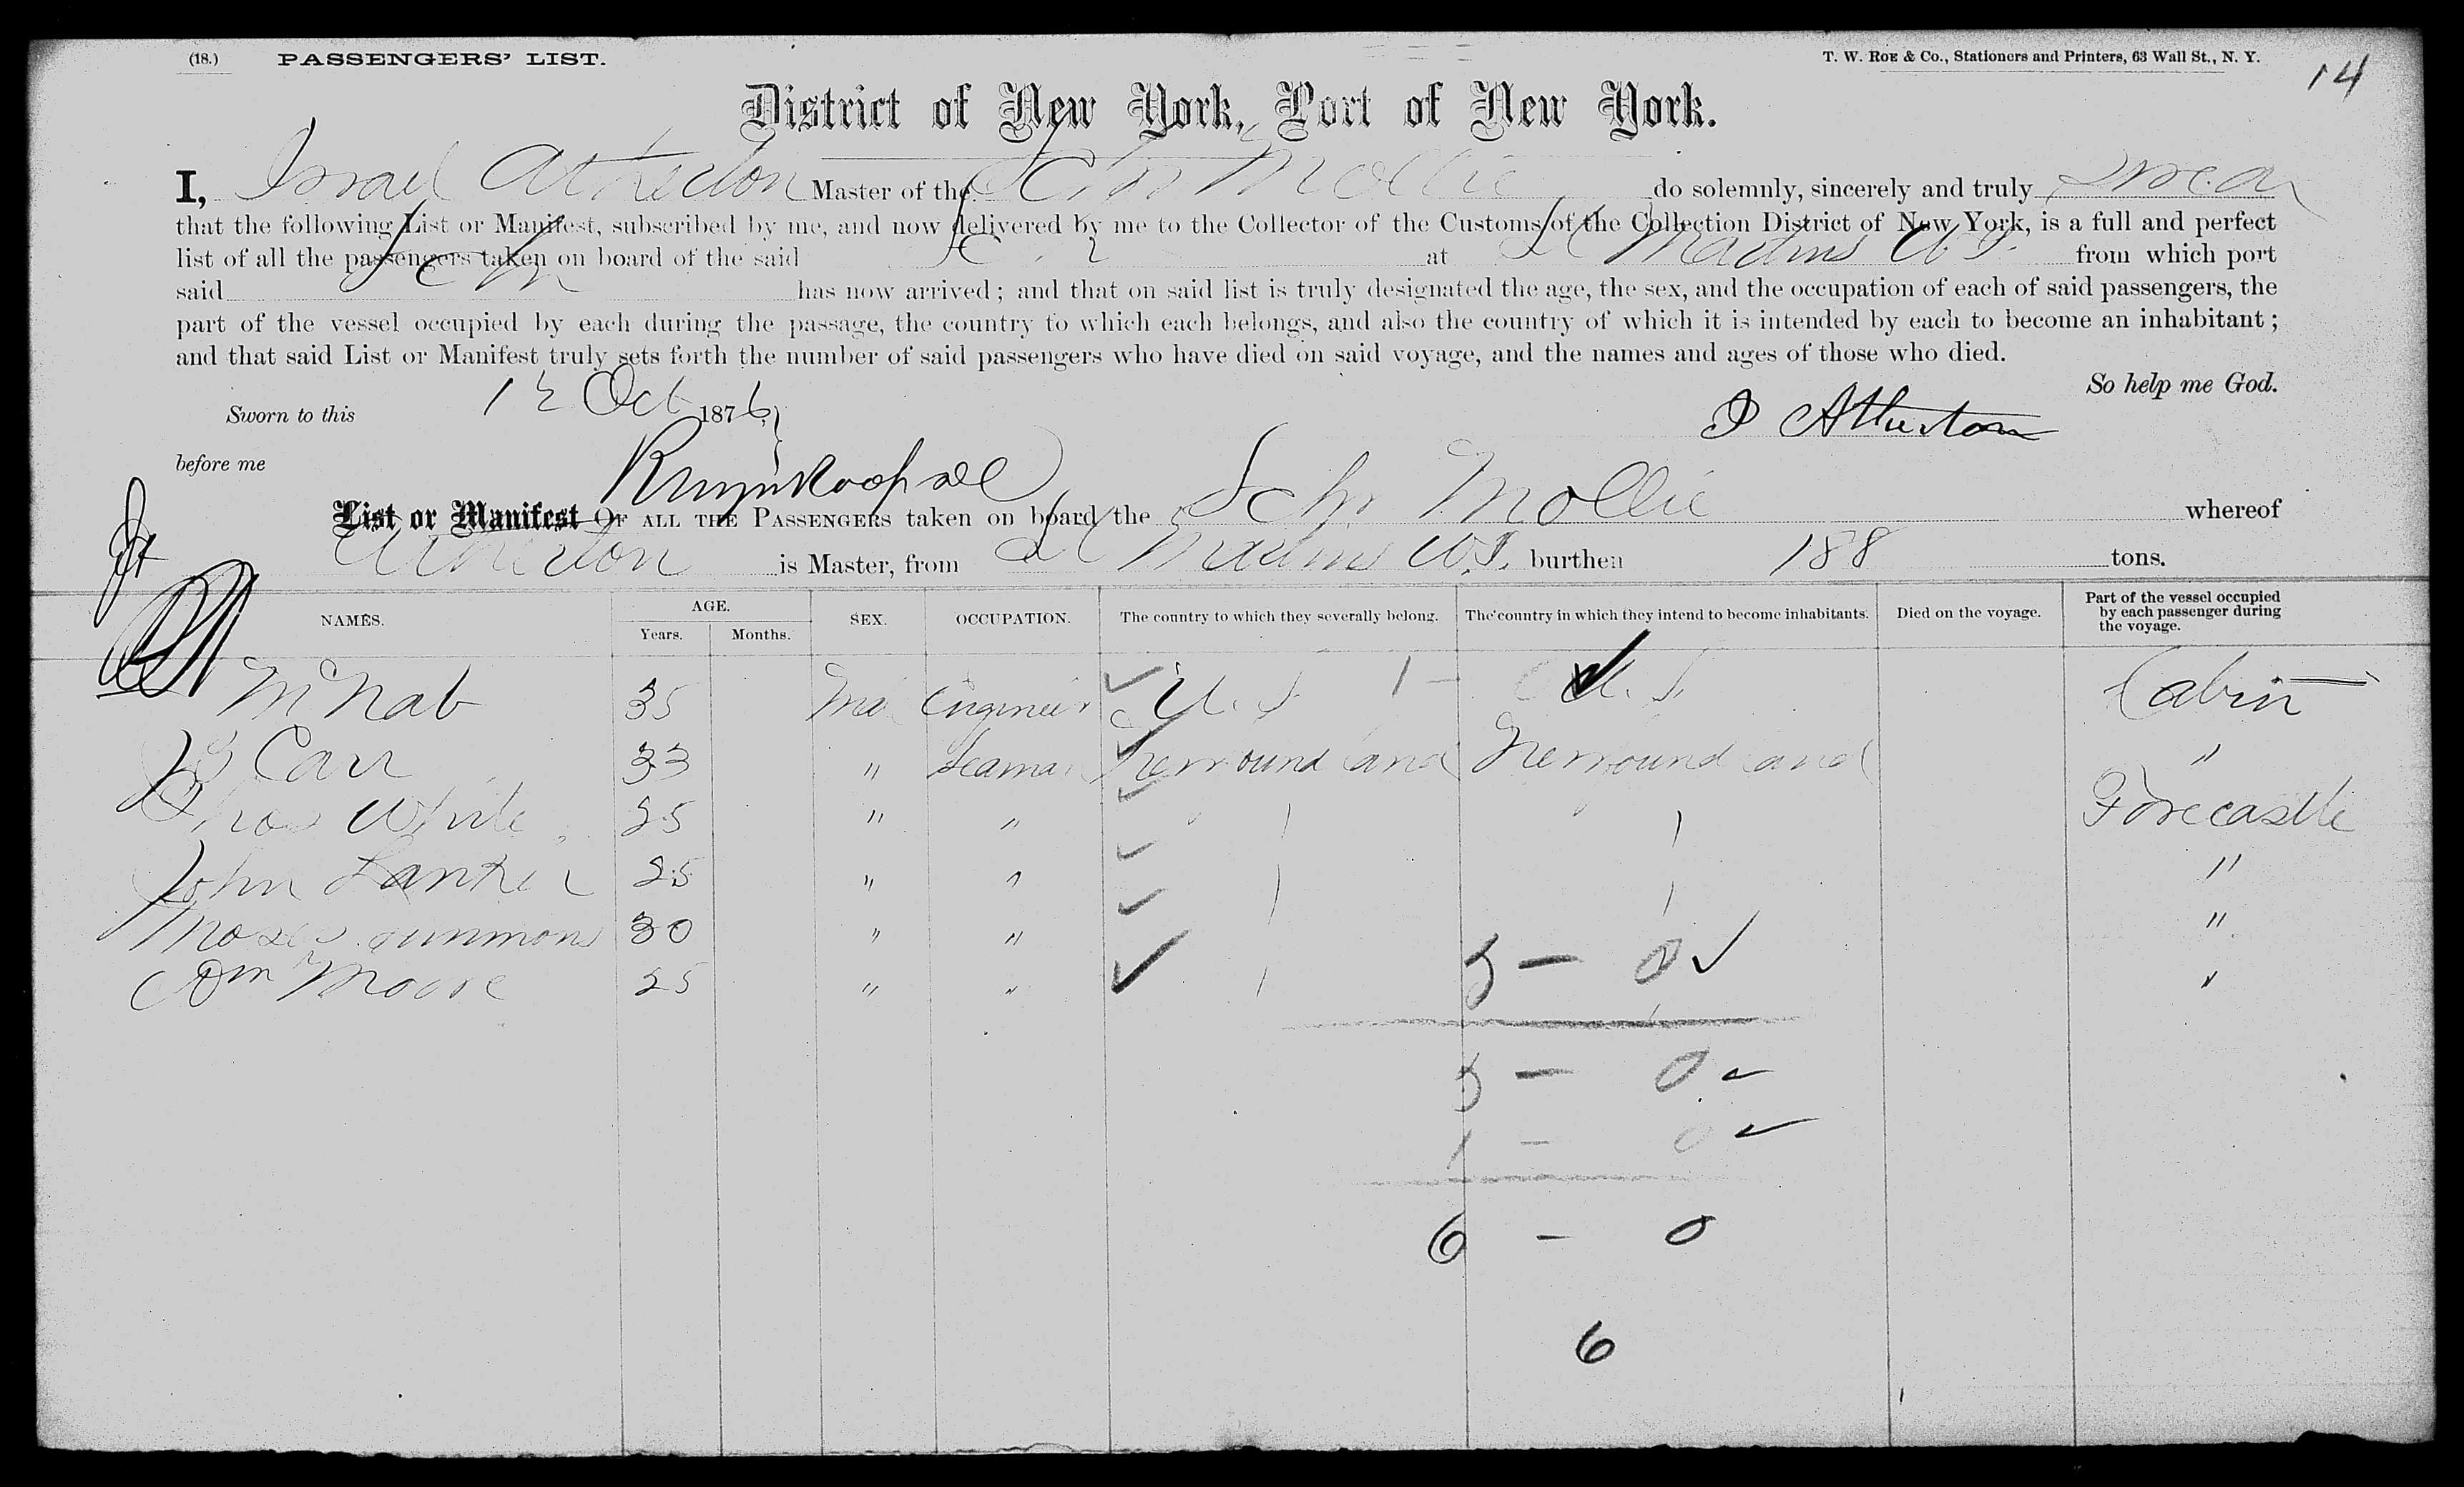 (18.) PASSENGERS' LIST. T. W. ROE & Co., Stationers and Printers, 63 Wall St., N. Y. 14
District of New York, Port of New York.
I, Israel Atherton Master of the Schr Mollie do solemnly, sincerely and truly swear
that the following List or Manifest, subscribed by me, and now delivered by me to the Collector of the Customs of the Collection District of New York, is a full and perfect
list of all the passengers taken on board of the said at St Martins W I from which port
said Schr has now arrived; and that on said list is truly designated the age, the sex, and the occupation of each of said passengers, the
part of the vessel occupied by each during the passage, the country to which each belongs, and also the country of which it is intended by each to become an inhabitant;
and that said List or Manifest truly sets forth the number of said passengers who have died on said voyage, and the names and ages of those who died.
So help me God.
Sworn to this 12 Oct 1876
I Atherton
before me
List or Manifest OF ALL THE PASSENGERS taken on board the Schr Mollie whereof
Atherton is Master, from St Martins W.I. burthen 188 tons.
NAMES. AGE. Years. Months. SEX. OCCUPATION. The country to which they severally belong. The country in which they intend to become inhabitants. Died on the voyage. Part of the vessel occupied by each passenger during the voyage.
McNab 35 Ma Engineer U. S 1 - U. S. Cabin
Carr 33 " Seaman Newfoundland Newfoundland "
Thos White 25 " " " " Forecastle
John 25 " " "
Moses 30 " " "
Wm Moore 25 " " "
5 - 0
5 - 0
1 - 0
6 - 0
6